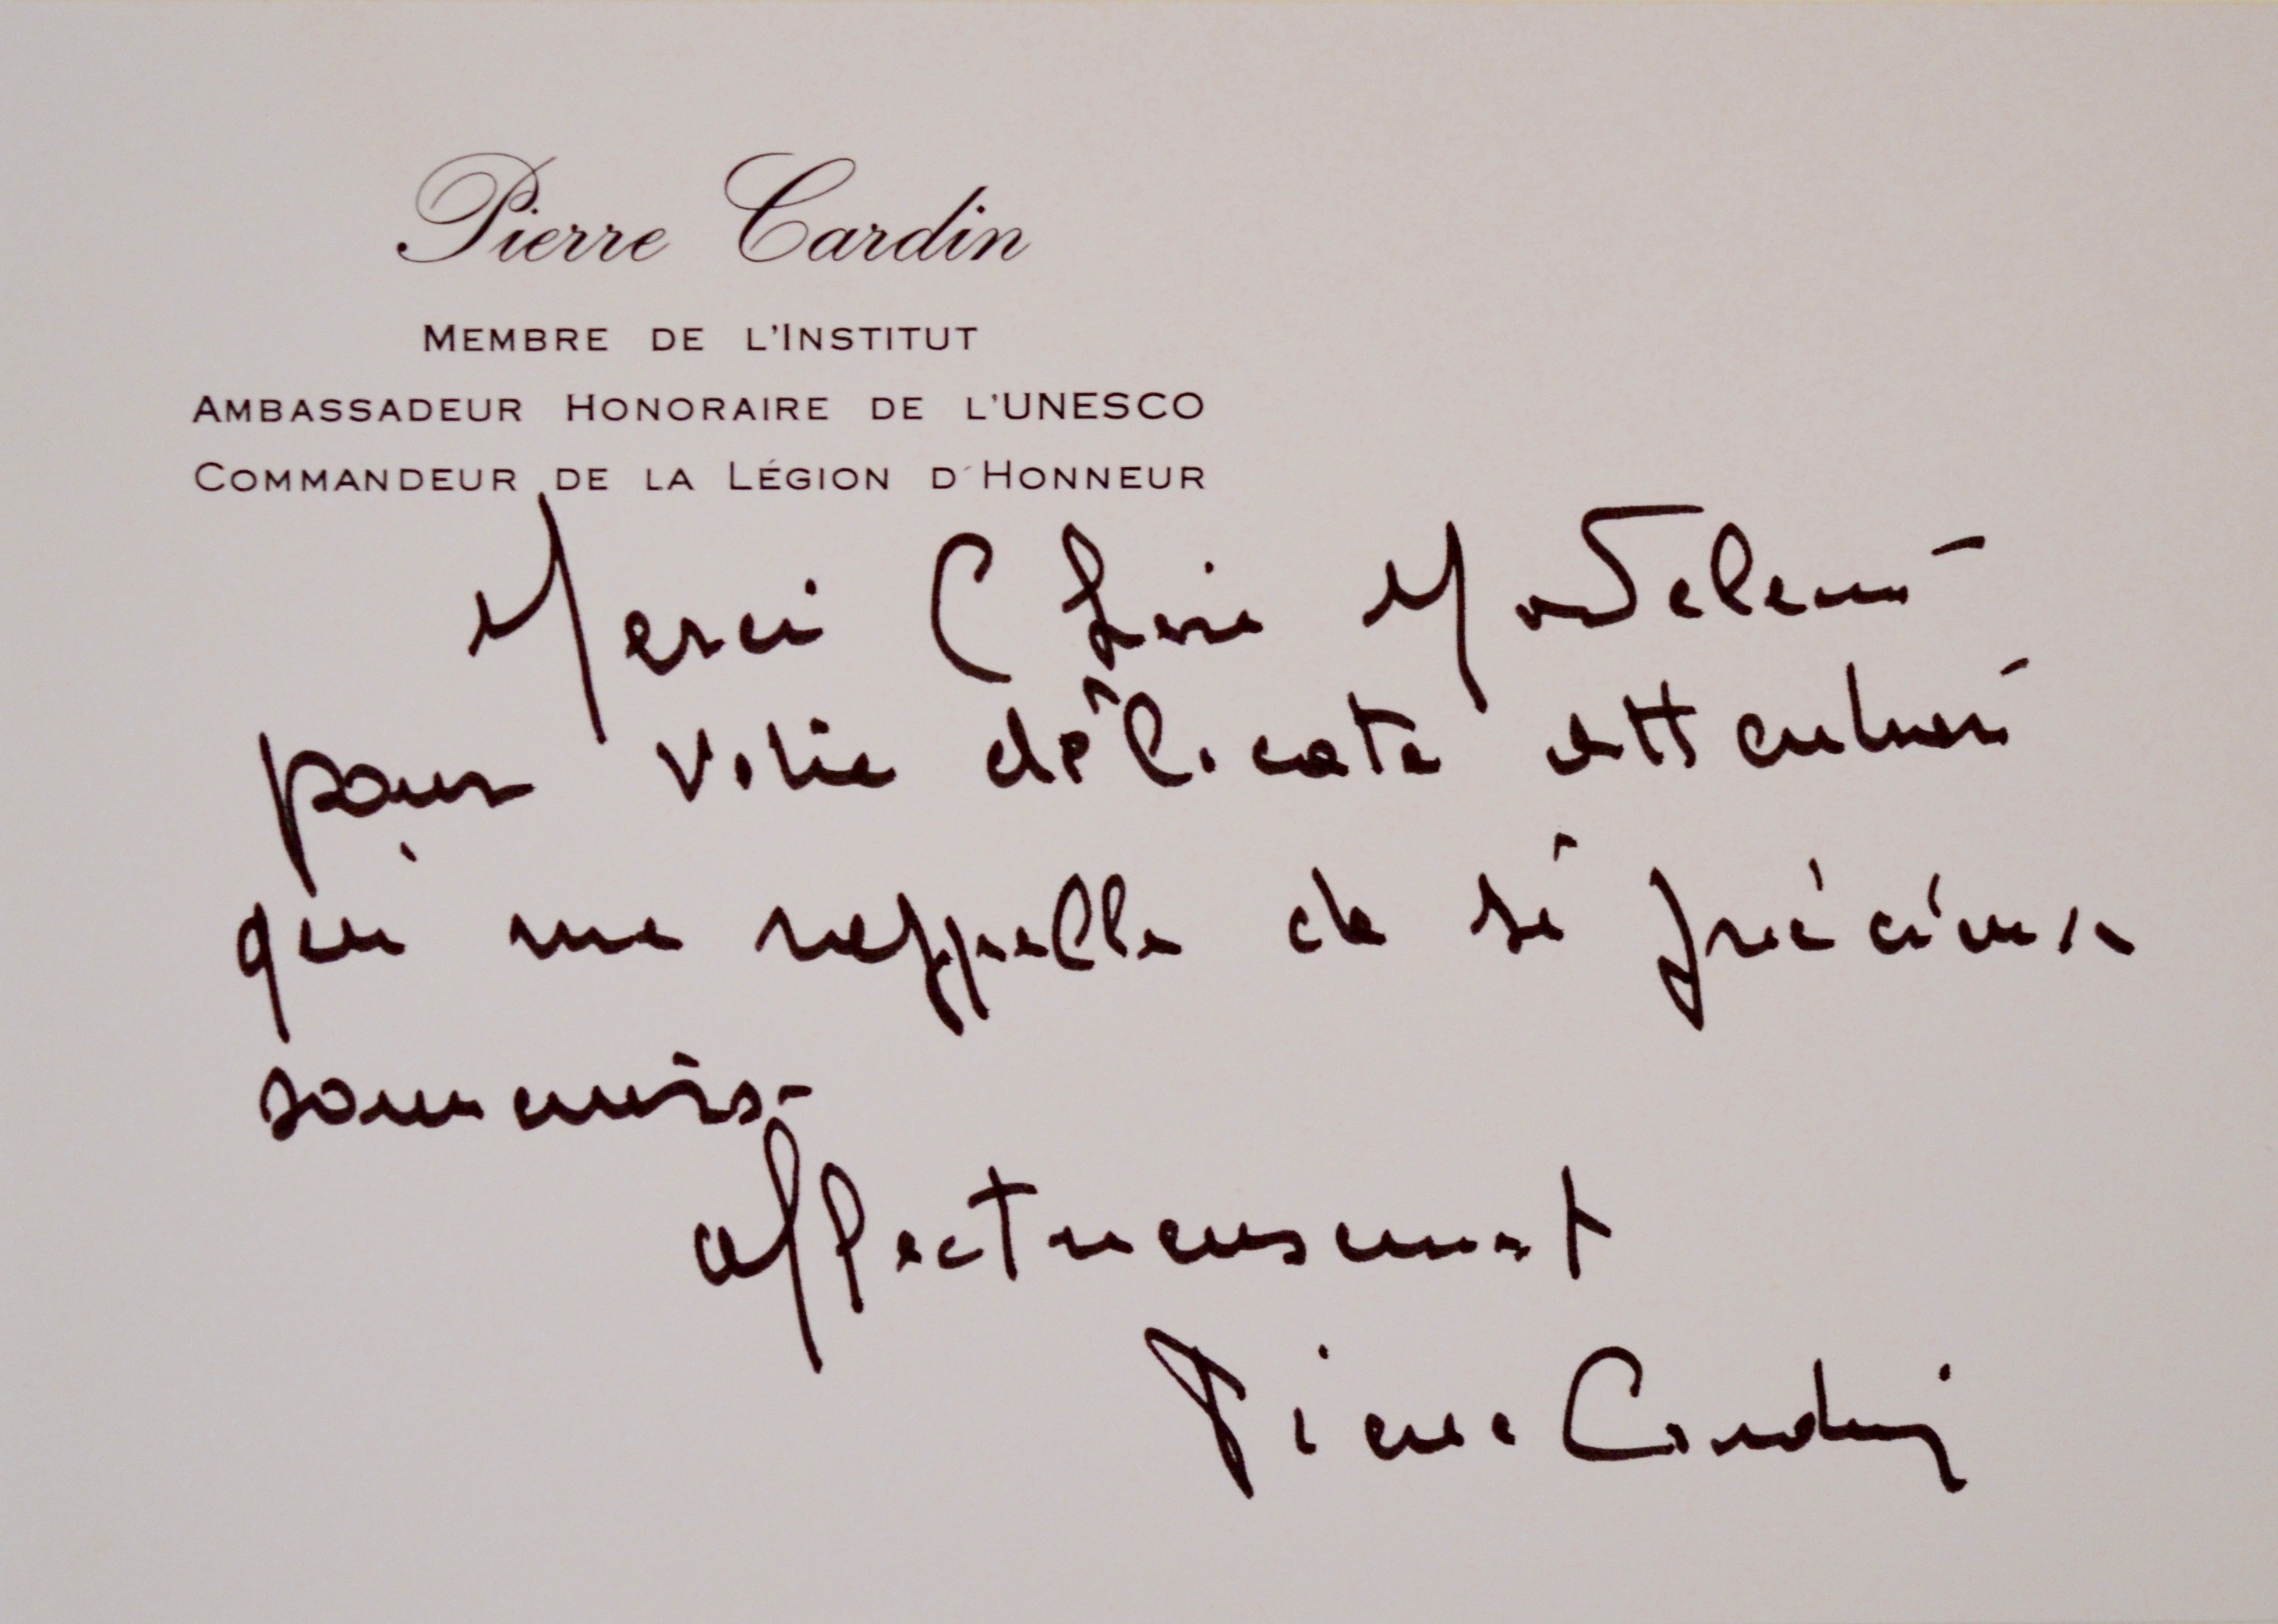 Pierre Cardin
MEMBRE DE L'INSTITUT
AMBASSADEUR HONORAIRE DE L'UNESCO
COMMANDEUR DE LA LÉGION D'HONNEUR
Merci Chère
pour votre délicate attention
qui me rappelle de si précieux
souvenirs.
affectueusement
Pierre Cardin